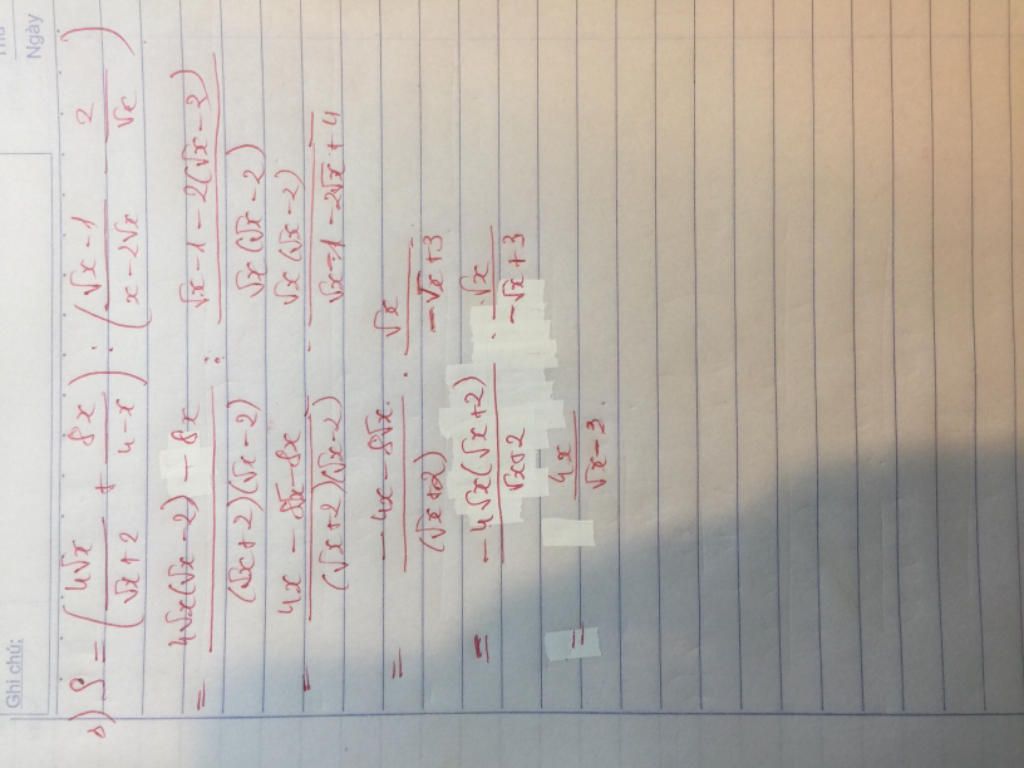 Thứ
Ngày
Ghi chú:
a) S = (4√x / √x+2 + 8x / 4-x) : (√x-1 / x-2√x - 2 / √x)
= 4√x(√x-2) - 8x / (√x+2)(√x-2) : √x-1-2(√x-2) / √x(√x-2)
= 4x - 8√x - 8x / (√x+2)(√x-2) . √x(√x-2) / √x-1-2√x+4
= -4x - 8√x / (√x+2) . √x / -√x+3
= -4√x(√x+2) / √x+2 . √x / -√x+3
= 4x / √x-3